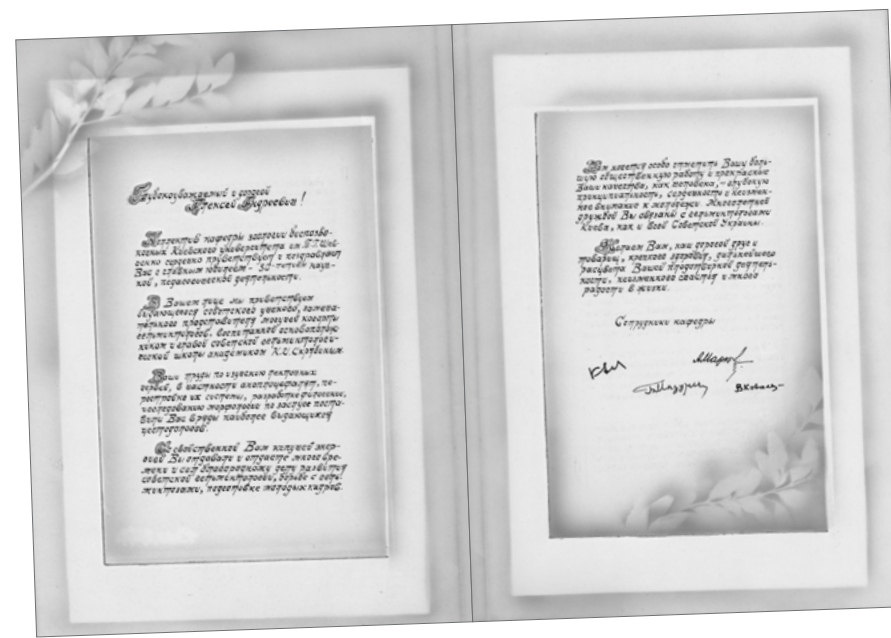 Глубокоуважаемый и дорогой
Алексей Андреевич!
Коллектив кафедры зоологии беспозво-
ночных Киевского университета им. Т.Г. Шев-
ченко сердечно приветствует и поздравляет
Вас с славным юбилеем - 50-летием науч-
ной, педагогической деятельности.
В Вашем лице мы приветствуем
выдающегося советского ученого, замеча-
тельного представителя могучей когорты
гельминтологов, воспитанной основополож-
ником и главой советской гельминтологи-
ческой школы академиком К.И. Скрябиным.
Ваши труды по изучению ленточных
червей, в частности аноплоцефалят, пе-
рестройке их системы, разработке филогении,
исследованию морфологии по заслуге поста-
вили Вас в ряды наиболее выдающихся
цестодологов.
Со свойственной Вам кипучей энер-
гией Вы отдавали и отдаете много вре-
мени и сил благородному делу развития
советской гельминтологии, борьбе с гель-
минтозами, подготовке молодых кадров.
Нам хочется особо отметить Вашу боль-
шую общественную работу и прекрасные
Ваши качества, как человека, - глубокую
принципиальность, сердечность и неизмен-
ное внимание к молодежи. Многолетней
дружбой Вы связаны с гельминтологами
Киева, как и всей Советской Украины.
Желаем Вам, наш дорогой друг и
товарищ, крепкого здоровья, дальнейшего
расцвета Вашей плодотворной деятель-
ности, неизменного счастья и много
радости в жизни.
Сотрудники кафедры